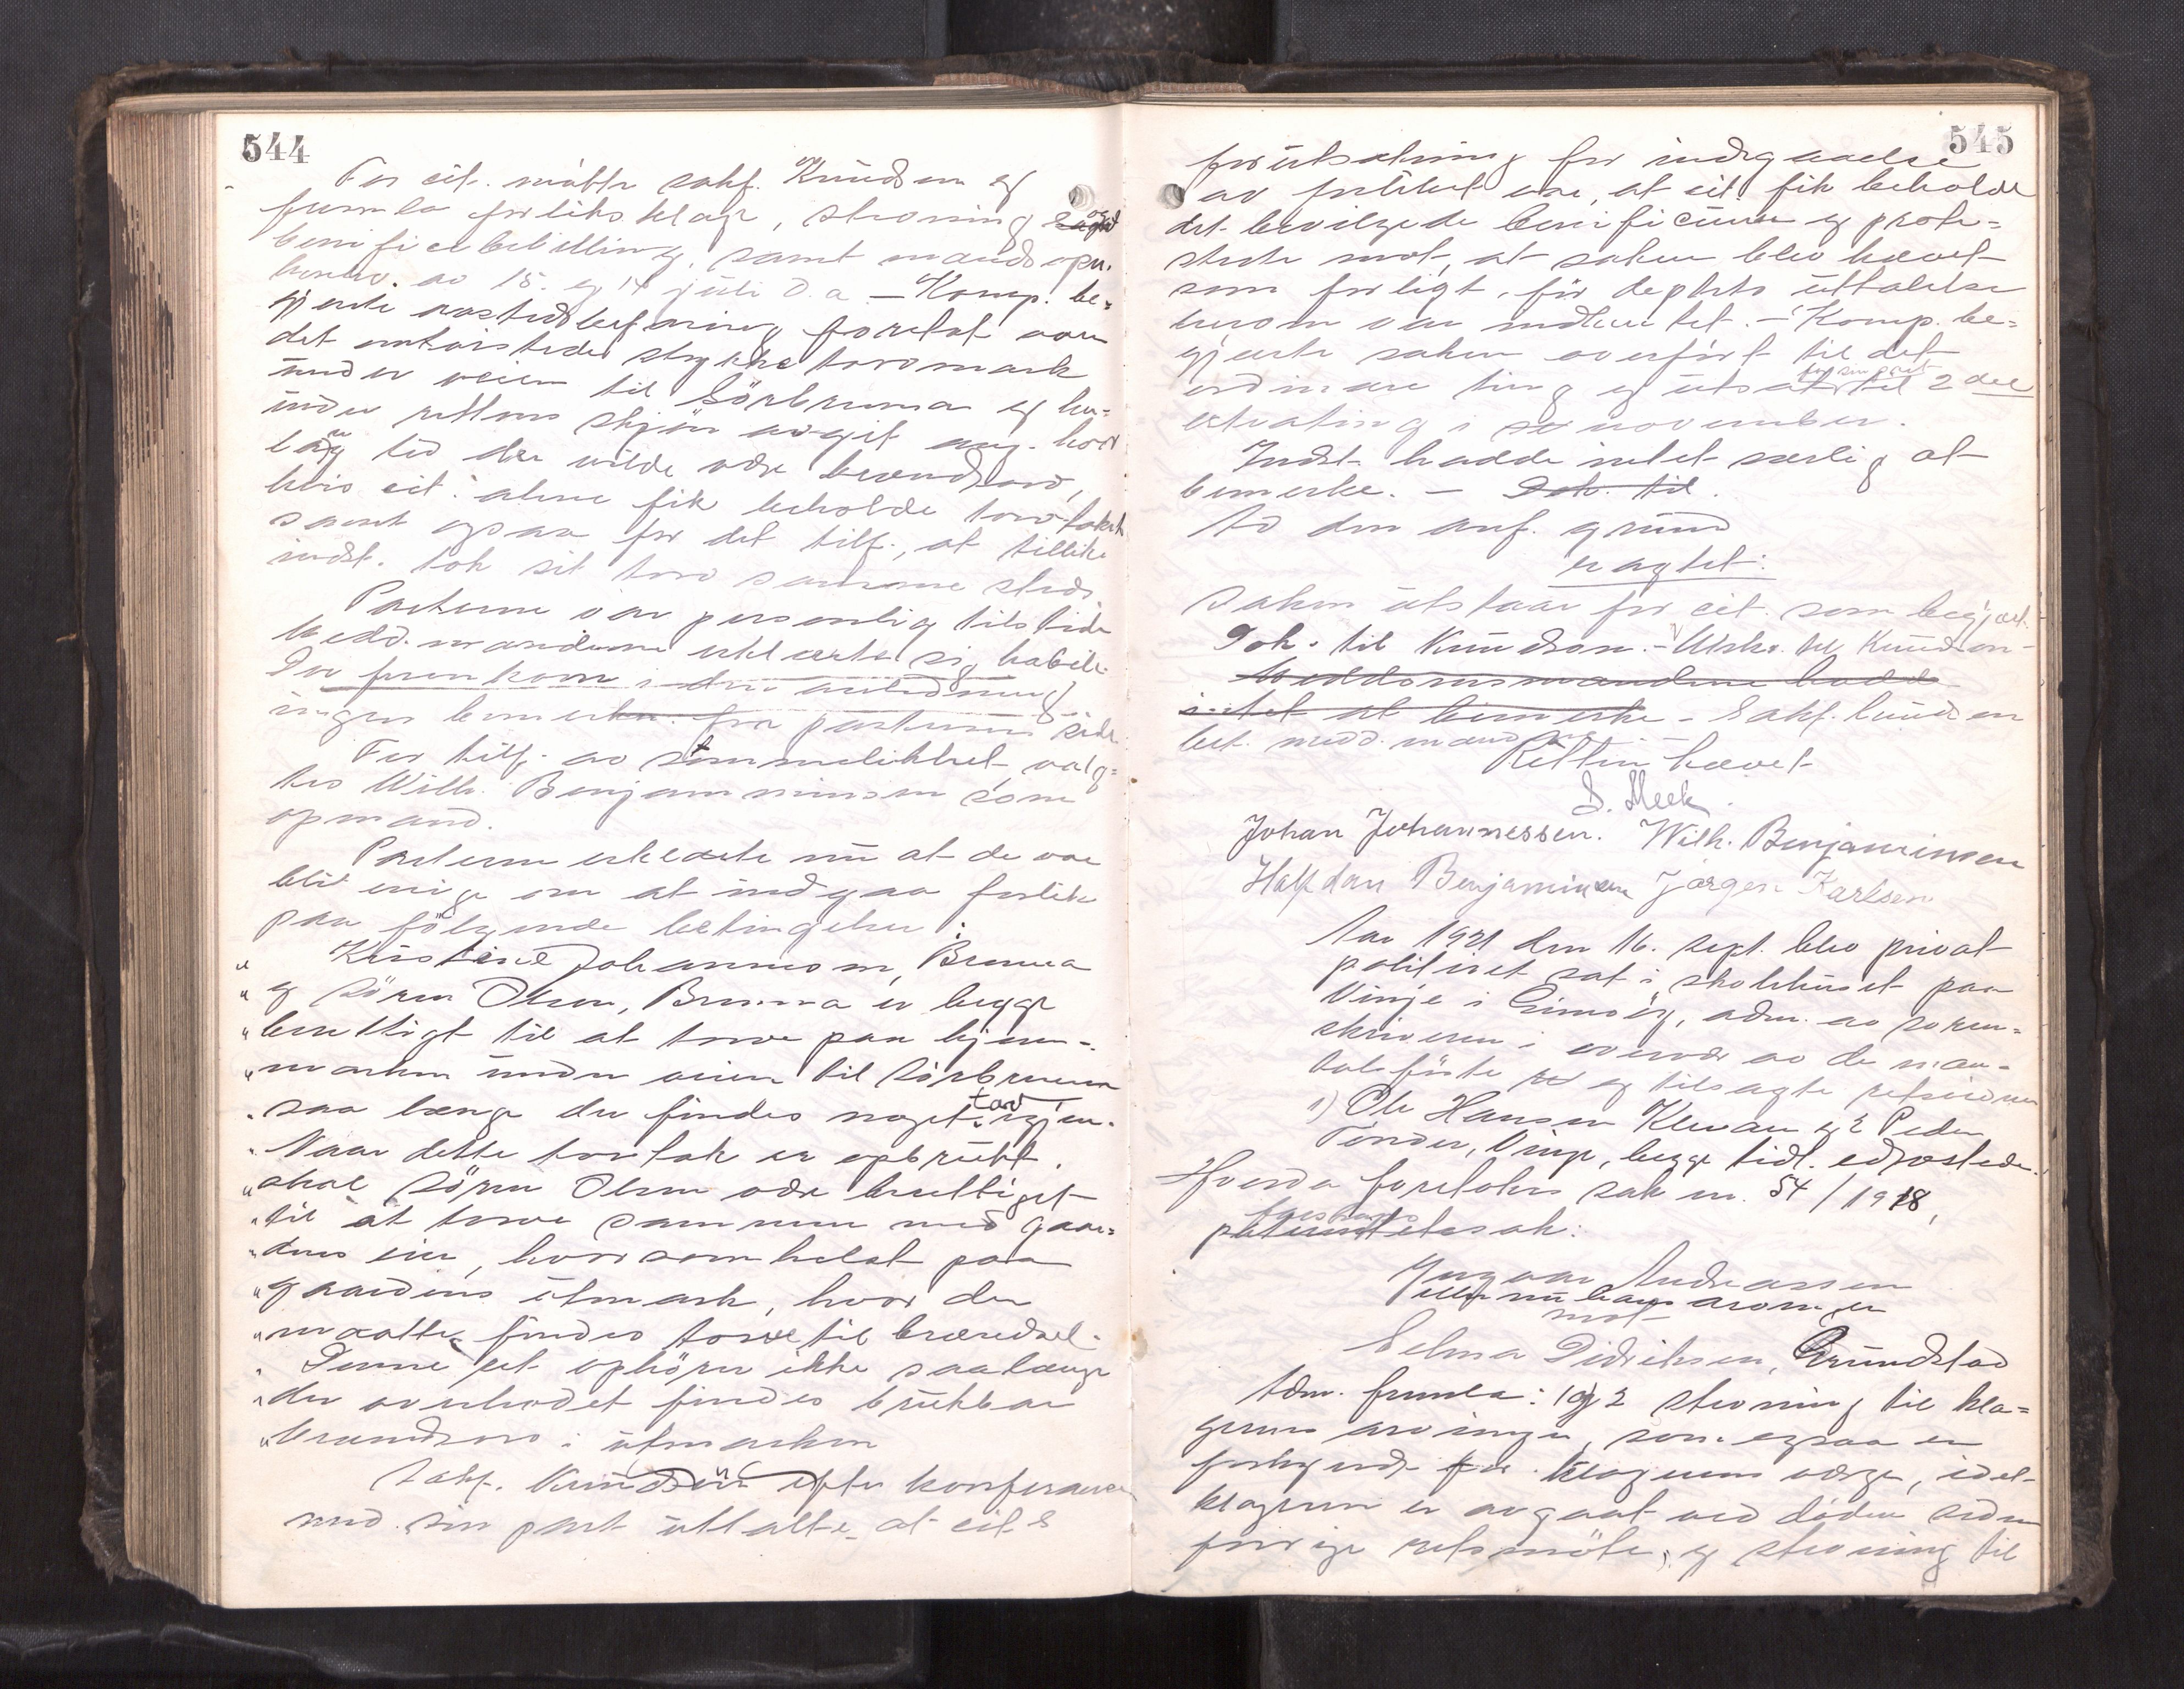 544
For cit. møtte sakf. Knudsen og
fremla forliksklage, stevning og
benificebevilling, samt mandsopn.
 av 15. og 14 juli d.a. – Komp. be-
gjærte aastedsbefaring foretat over
det omtvistede stykke torvmark
under veien til Sörbrunna og her-
under rettens skjön avgit ang. hvor
lang tid der vilde være brændtorv,
hvis cit. alene fik beholde torvtaket
samt ogsaa for det tilf., at tillike
indst. tok sit torv samme sted.
Parterne var personlig tilstede
Medd.mændene erklærte sig habile.
Der fremkom i den anledning
ingen bemerkn. fra parternes side.
For tilf. av stemmelikhet valg-
tes Wilh. Benjaminsen som
opmand.
Parterne erklærte nu at de var
blit enige om at indgaa forlik
paa fölgende betingelser:
" Kristine Johannesen, Brunna
" og Sören Olsen, Brunna er begge
" berettigt til at torve paa hjem-
" marken under veien til Sörbrunna
" saa længe der findes noget torv igjen.
" Naar dette torvtak er opbrukt,
" skal Sören Olsen være berettiget
" til at torve sammen med gaar-
" dens eier, hvorsomhelst paa
" gaardens utmark, hvor der
" maatte findes torv til brændsel.
" Denne ret ophörer ikke saalænge
" der overhodet findes brukbar
" brændtorv i utmarken
Sakf. Knudsen efter konferanse
med sin part uttalte, at cit.s
545
forutsætning for indgaaelse
av forliket var, at cit. fik beholde
det bevilgede benificium og prote-
sterte mot, at saken blev hævet
som forligt, för deptets uttalelse
herom var indhentet. – Komp. be-
gjærte saken overfört til det
ordinære ting og utsat til 2 det
extrating i november.
Indst. hadde intet særlig at
bemerke. – Dok. til
Av den anf. grund
er agtet:
Saken utstaar for cit. som begjært.
Dok. til Knudsen. – Utskr. til Knudsen –
Meddomsmændene hadde
intet at bemerke – Sakf. Knudsen
bet. medd.mændene. –
Retten hævet
S. Meek.
Johan Johannessen. Wilh. Benjaminsen
Halfdan Benjaminsen Jørgen Karlsen
Aar 1921 den 16. sept. blev privat
politiret sat i skolehuset paa
Vinje i Gimsöy, adm. av soren-
skriveren i overvær av de man-
talsförte og tilsagte retsvidner
1) Ole Hansen Klevan og 2 Peder
Tönder, Vinje, begge tidl. edfæstede.
Hvorda foretokes sak nr. 54/1918,
 sak:
Ingvar Andreassen
eller nu hans arvinger
mot
Selma Didriksen, Grundstad
Adm. fremla: 1 og 2 stevning til kla-
gerens arvinger, som ogsaa er
forkyndt for klagerens værge, idet
klageren er avgaat ved döden siden
forrige retsmöte, og stevning til